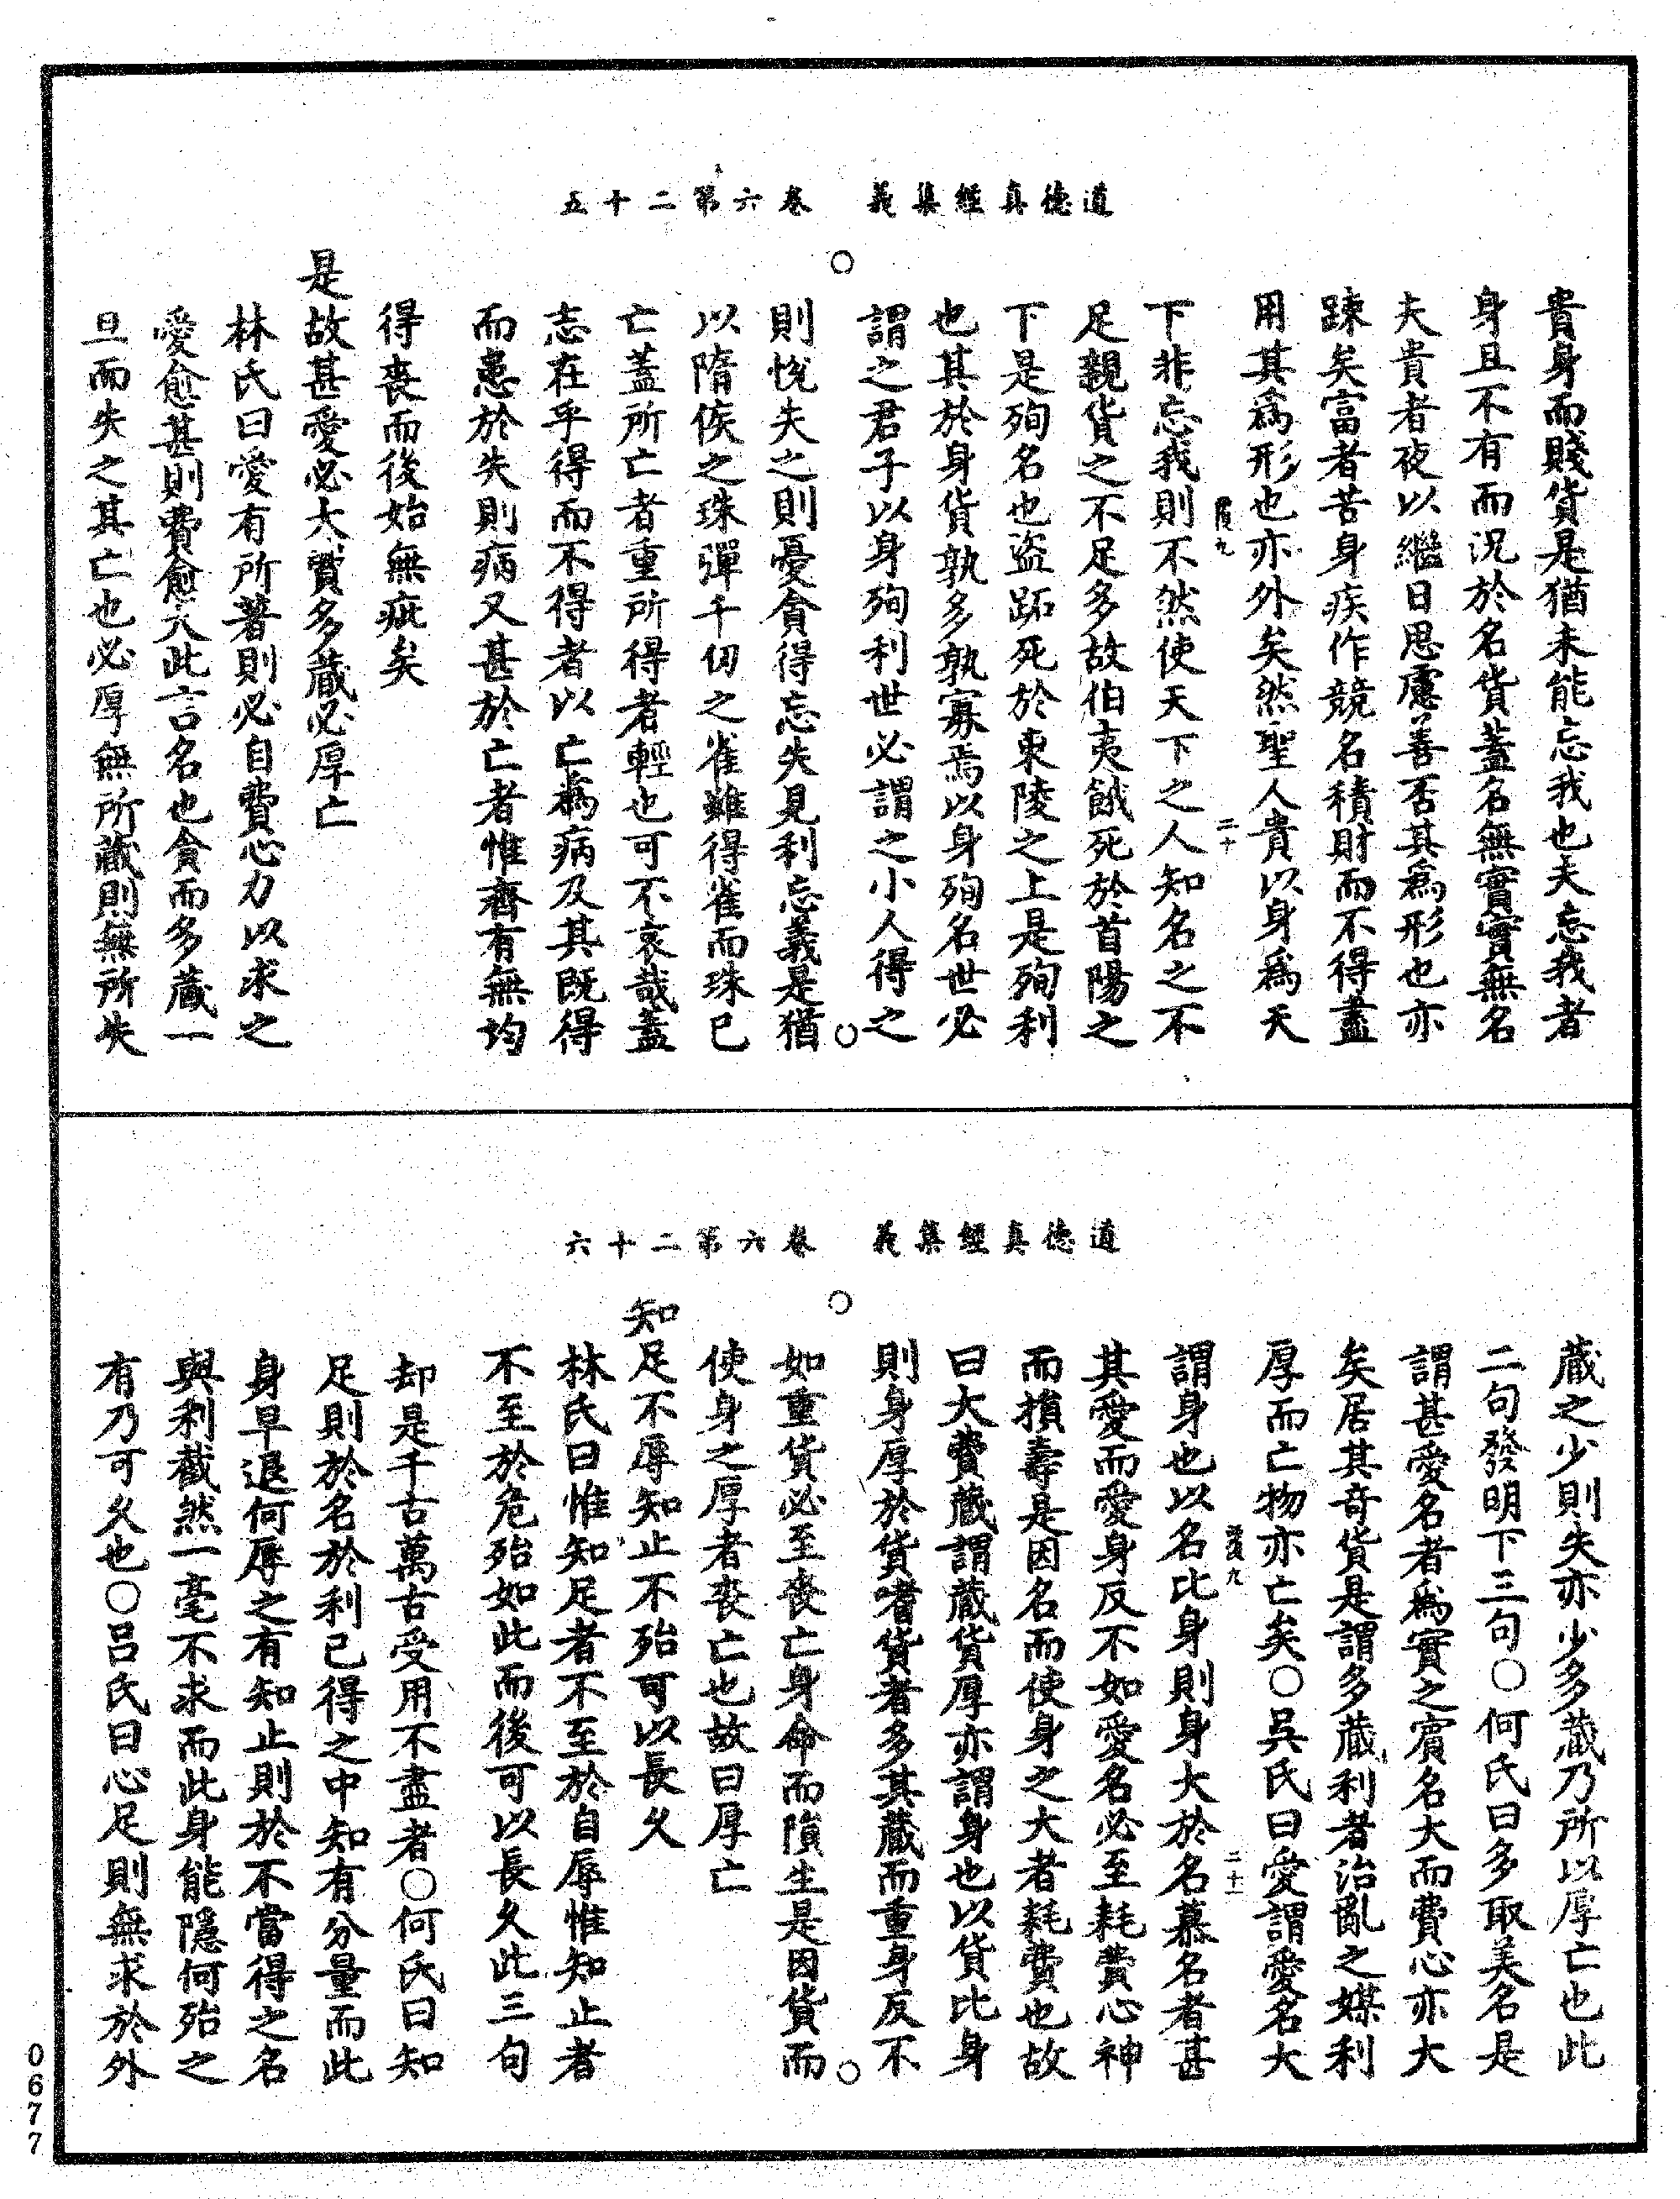 道德真經集義　卷六第二十五
貴身而賤貨是猶未能忘我也夫忘我者
身且不有而況於名貨蓋名無實實無名
夫貴者夜以繼日思慮善否其爲形也亦
踈矣富者苦身疾作競名積財而不得盡
用其爲形也亦外矣然聖人貴以身爲天
九
二十
下非忘我則不然使天下之人知名之不
足親貨之不足多故伯夷餓死於首陽之
下是殉名也盜跖死於東陵之上是殉利
也其於身貨孰多孰寡焉以身殉名世必
謂之君子以身殉利世必謂之小人得之
則悅失之則憂貪得忘失見利忘義是猶
以隋侯之珠彈千仞之雀雖得雀而珠已
亡蓋所亡者重所得者輕也可不哀哉蓋
志在乎得而不得者以亡爲病及其既得
而患於失則病又甚於亡者惟齊有無均
得喪而後始無疵矣
是故甚愛必大費多藏必厚亡
林氏曰愛有所著則必自費心力以求之
愛愈甚則費愈大此言名也貪而多藏一
旦而失之其亡也必厚無所藏則無所失
道德真經集義　卷六第二十六
藏之少則失亦少多藏乃所以厚亡也此
二句發明下三句○何氏曰多取美名是
謂甚愛名者爲實之賓名大而費心亦大
矣居其奇貨是謂多藏利者治亂之媒利
厚而亡物亦亡矣○吳氏曰愛謂愛名大
九
二十一
謂身也以名比身則身大於名慕名者甚
其愛而愛身反不如愛名必至耗費心神
而損壽是因名而使身之大者耗費也故
曰大費藏謂藏貨厚亦謂身也以貨比身
則身厚於貨嗜貨者多其藏而重身反不
如重貨必至喪亡身命而隕生是因貨而
使身之厚者喪亡也故曰厚亡
知足不辱知止不殆可以長久
林氏曰惟知足者不至於自辱惟知止者
不至於危殆如此而後可以長久此三句
却是千古萬古受用不盡者○何氏曰知
足則於名於利已得之中知有分量而此
身早退何辱之有知止則於不當得之名
與利截然一毫不求而此身能隱何殆之
有乃可久也○呂氏曰心足則無求於外
0677